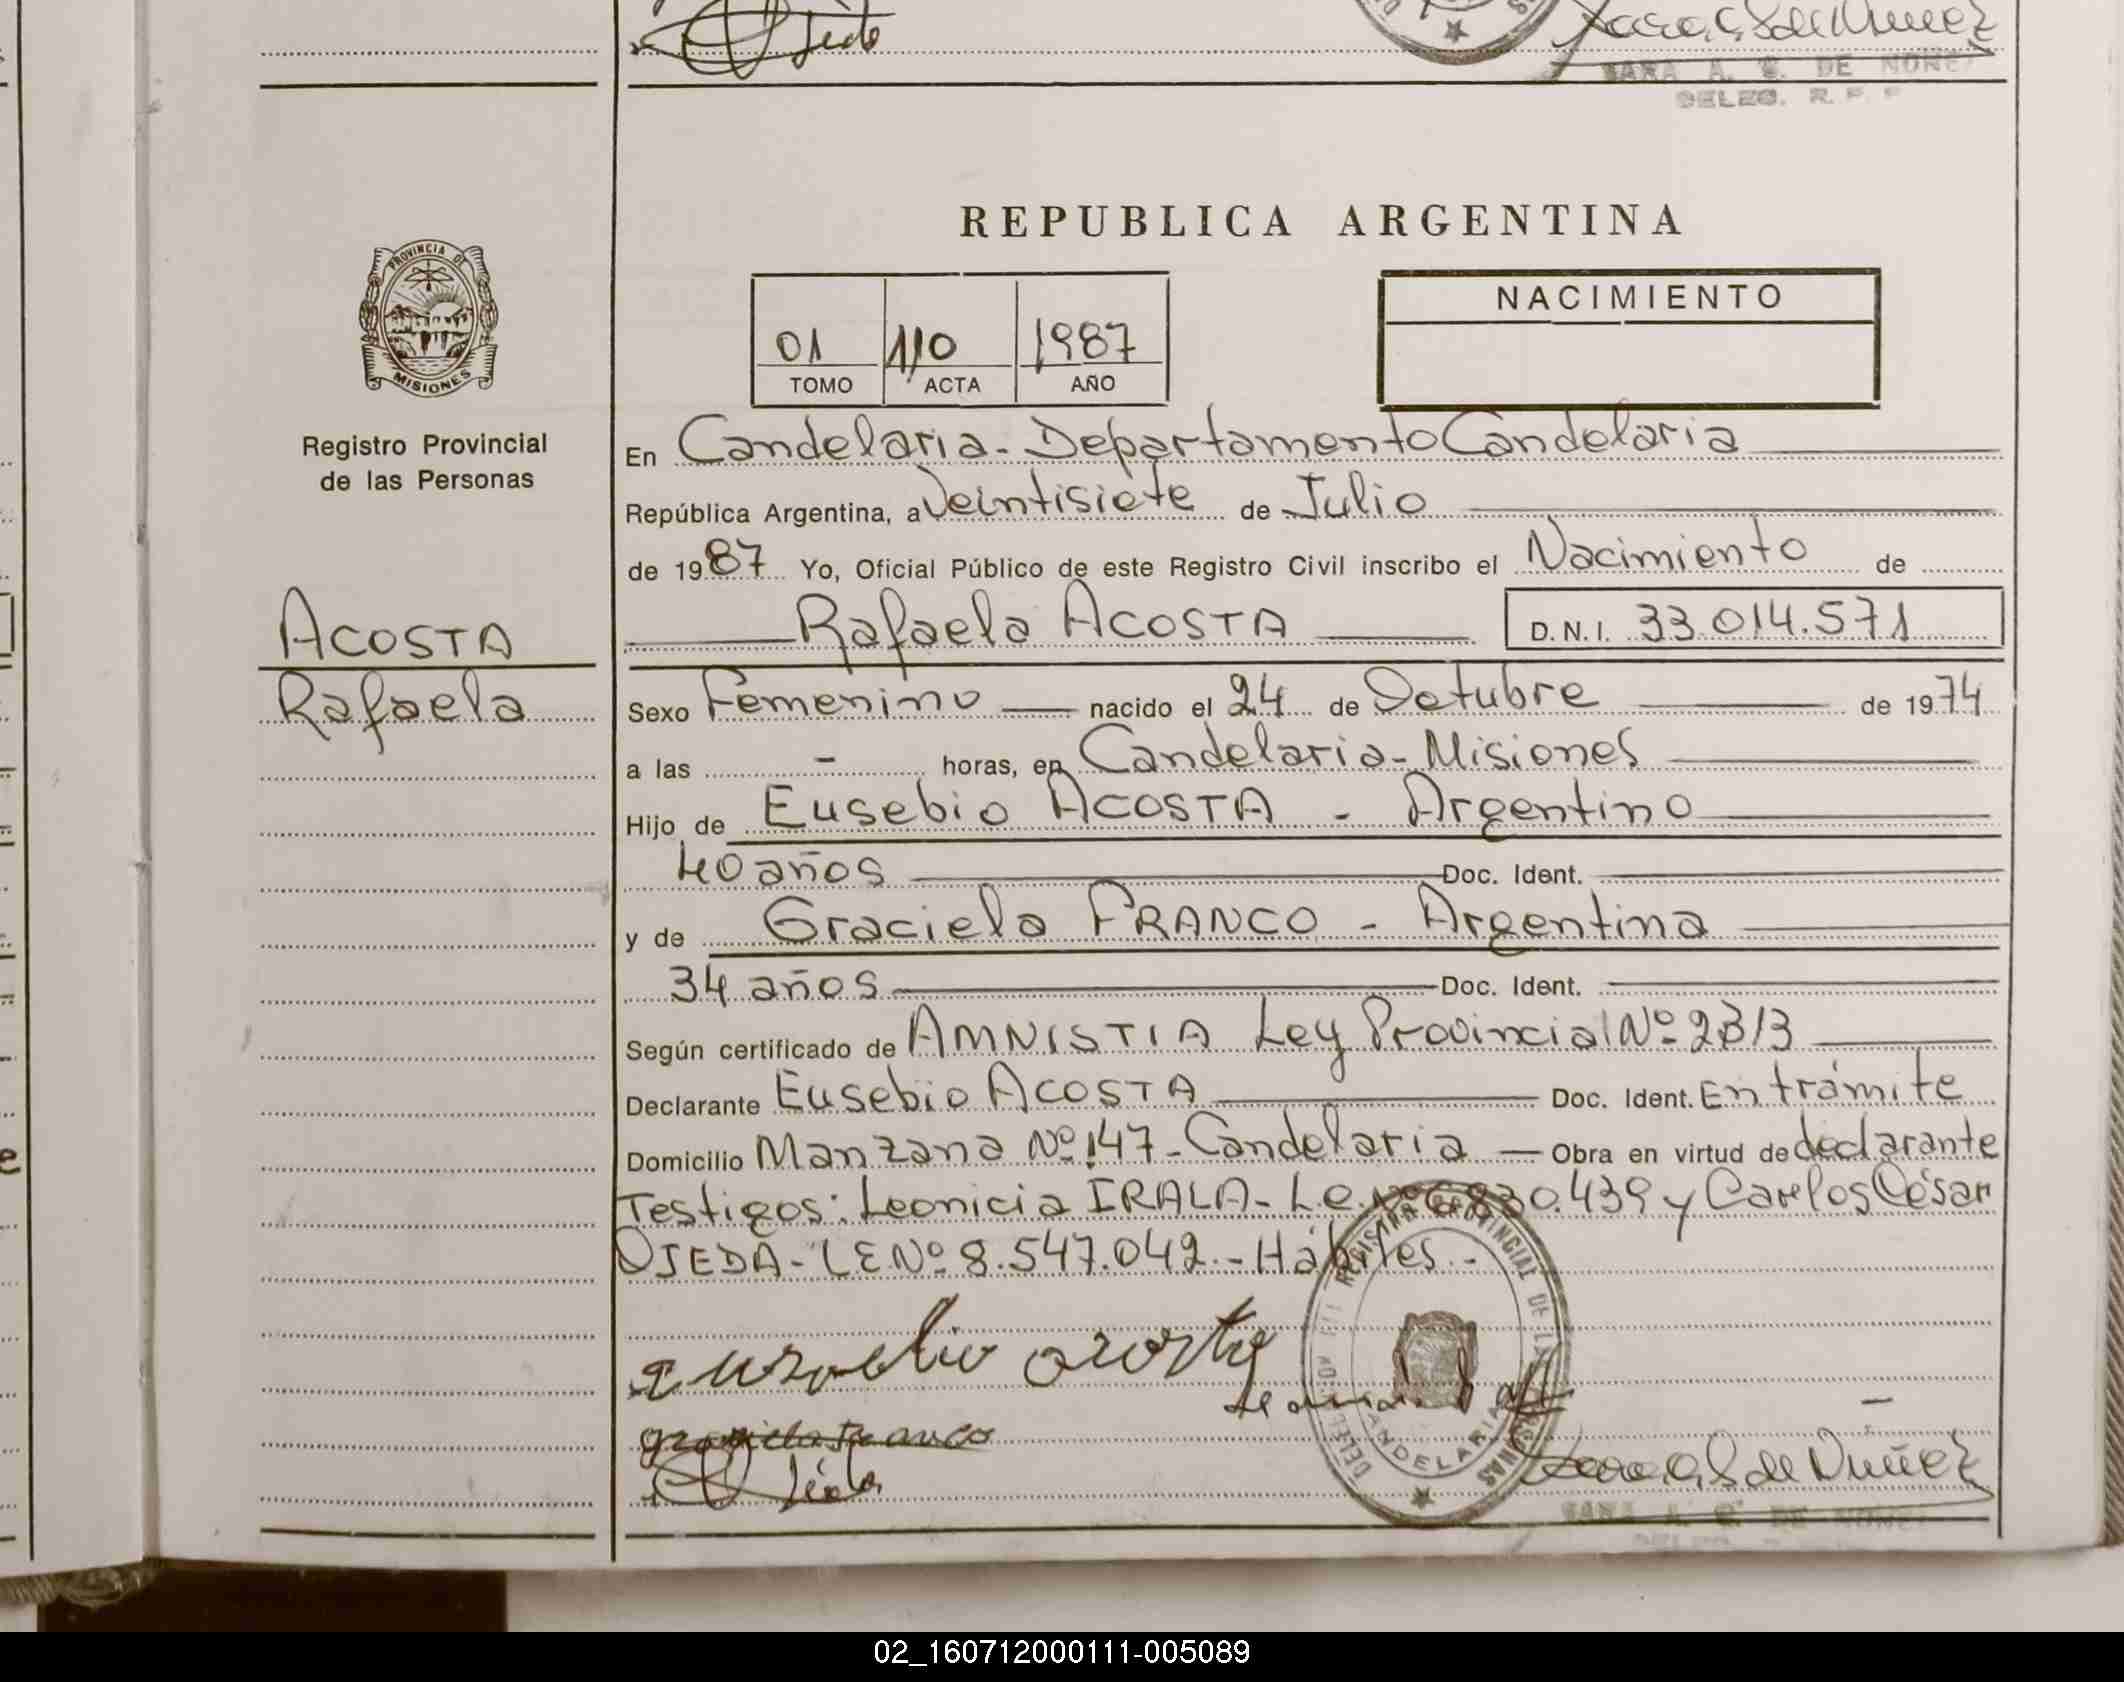 SARA A. G. DE NUÑEZ
DELEG. R. P. P
REPUBLICA ARGENTINA
PROVINCIA DE
MISIONES
Registro Provincial
de las Personas
01 110 1987
TOMO ACTA AÑO
NACIMIENTO
En Candelaria - Departamento Candelaria
República Argentina, a Veintisiete de Julio
de 1987 Yo, Oficial Público de este Registro Civil inscribo el Nacimiento de
ACOSTA
Rafaela
Rafaela ACOSTA D.N.I. 33.014.571
Sexo Femenino nacido el 24 de Octubre de 1974
a las - horas, en Candelaria - Misiones
Hijo de Eusebio ACOSTA - Argentino
40 años Doc. Ident.
y de Graciela FRANCO - Argentina
34 años Doc. Ident.
Según certificado de AMNISTIA Ley Provincial Nº 2313
Declarante Eusebio ACOSTA Doc. Ident. En trámite
Domicilio Manzana Nº 147 - Candelaria Obra en virtud de declarante
Testigos: Leonicia IRALA - L.C. Nº 6.830.439 y Carlos César
OJEDA - LE Nº 8.547.042. - Hábiles. -
eusebio acosta
graciela Franco
REGISTRO PROVINCIAL DE LAS PERSONAS
CANDELARIA
Sara A. G. de Nuñez
SARA A. G. DE NUÑEZ
02_160712000111-005089